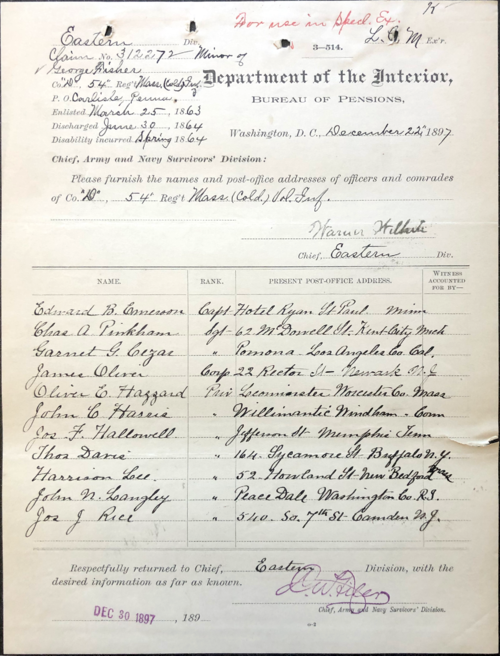 For use in Spec. Ex.
Eastern Div.
L. G. M Ex'r.
Claim No. 312272 Minor of
3—514.
George Bisher
Co. "D", 54" Reg't Mass. (Cold) Inf.
Department of the Interior,
P. O. Carlisle, Penna,
Bureau of Pensions,
Enlisted March 25, 1863
Discharged June 30, 1864
Washington, D. C., December 22", 1897
Disability incurred, Spring 1864
Chief, Army and Navy Survivors' Division:
Please furnish the names and post-office addresses of officers and comrades
of Co. "D", 54" Reg't Mass. (Cold.) Vol. Inf.
Chief, Eastern Div.
NAME. RANK. PRESENT POST-OFFICE ADDRESS. WITNESS ACCOUNTED FOR BY—
Edward B. Emerson Capt Hotel Ryan St Paul Minn
Chas A. Pinkham Sgt 62 McDowell St. Kent City Mich
Garnet G. Cezar " Pomona - Los Angeles Co. Cal.
James Oliver Corp 22 Rector St - Newark N.J
Oliver E. Hazzard Priv Leominster Worcester Co. Mass
John C Harris " Willimantic Windham - Conn
Jos F. Hallowell " Jefferson St Memphis Tenn
Thos Davis " 164 Sycamore St Buffalo N.Y.
Harrison Lee. " 52 Howland St New Bedford Mass
John N. Langley " Peace Dale Washington Co R.I.
Jos J Rice " 540 So. 7th St Camden N.J.
Respectfully returned to Chief, Eastern Division, with the
desired information as far as known.
DEC 30 1897, 189
Chief, Army and Navy Survivors' Division.